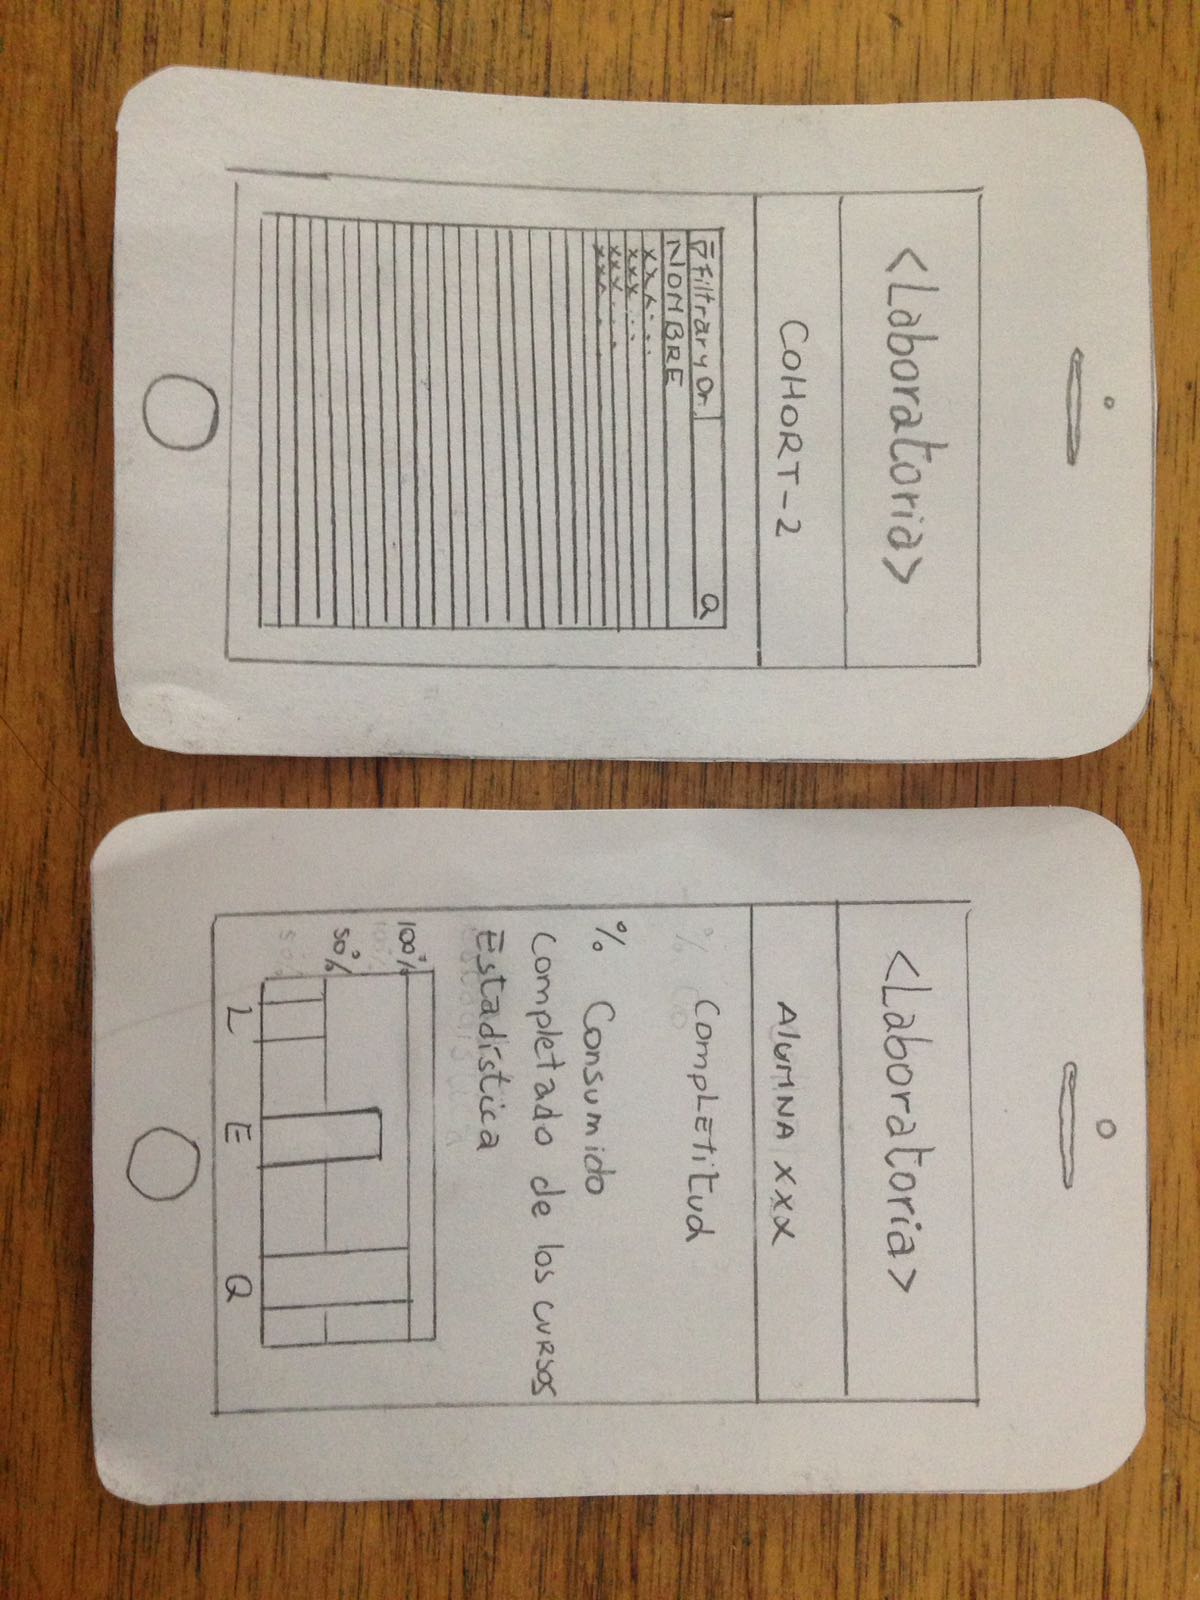 <Laboratoria>
COHORT-2
Filtrar y Or.
NOMBRE
xxx...
xxx...
xxx....
xxx...
<Laboratoria>
AlUMNA XXX
Completitud
% Consumido
completado de los cursos
Estadística
100%
50%
L E Q